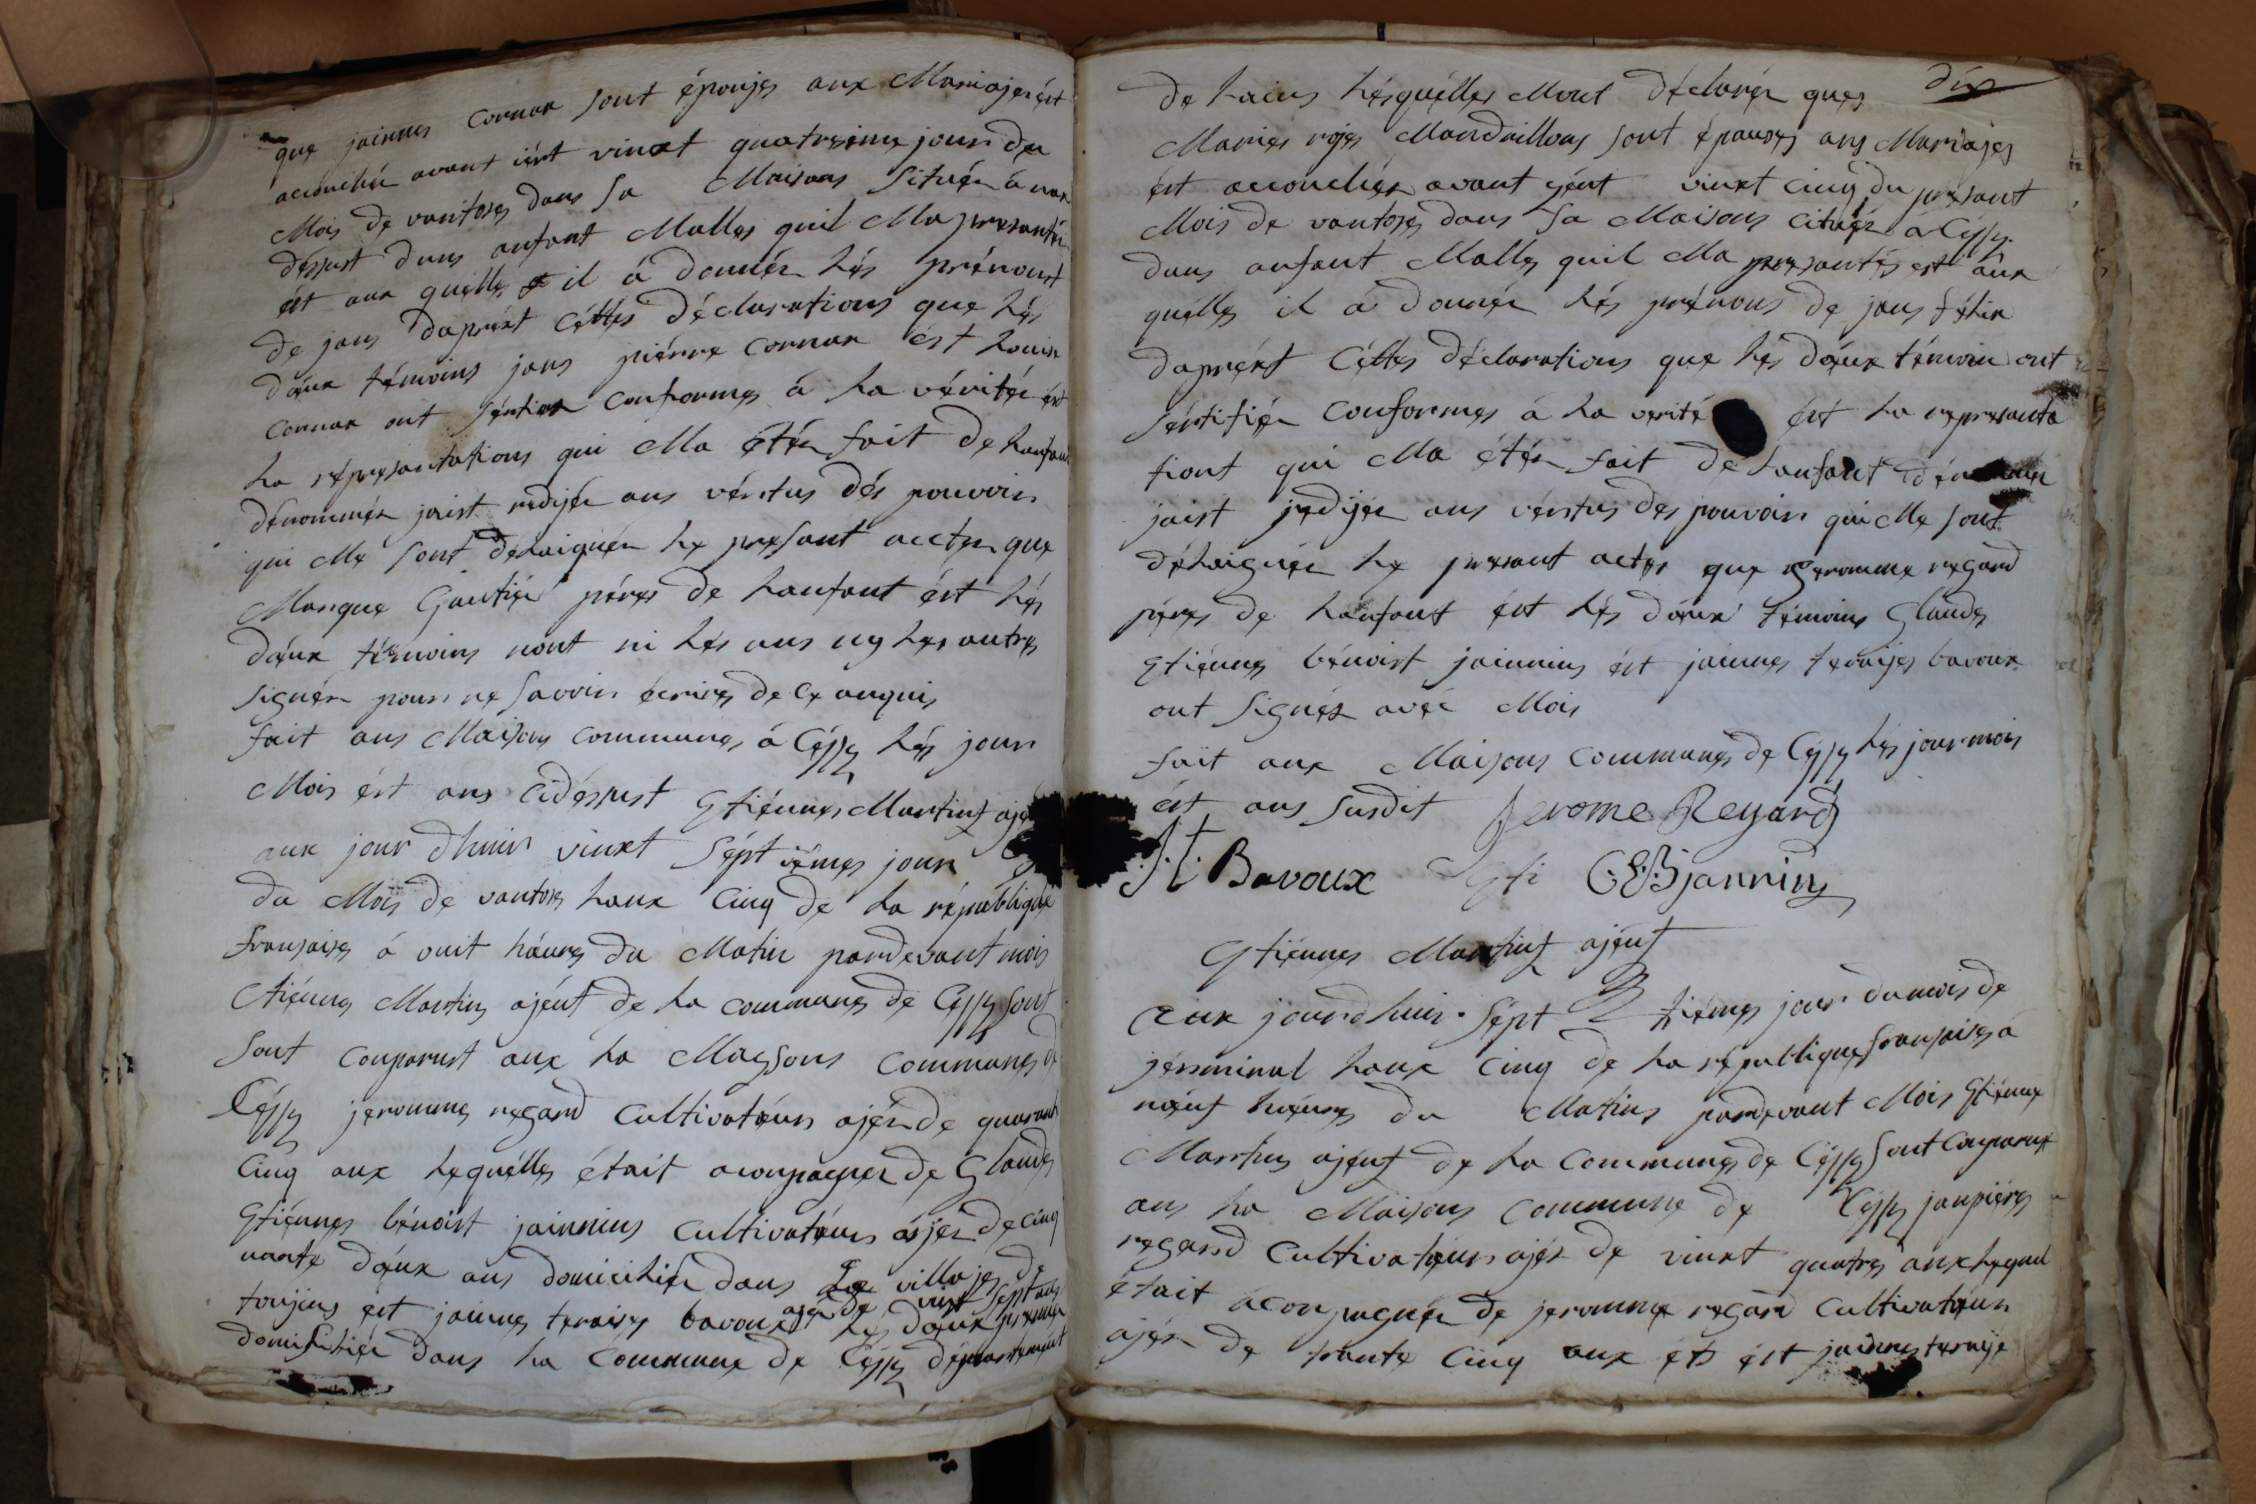 que jainnes Cornux sont épouses aux Mariajes ért
accouchér avant iért vinxt quatreime jour du
Mois de vantoses dans sa Maisons Situér à
desjust duns anfant Malles quil Ma presantér
ét aux quélles il à donnér Lés prénomst
de jans daprést céttes déclarations que Lés
déux témoins jans piérre Cornux ést Louis
Cornux ont Conformes á La véritér ért
La réprésantations qui Ma étér fait de Lanfant
dénommér jaist redijér ans vértus dés pouvoir
qui Me sont délaiguér Le presant acter que
Marque Gautiér pérer de Lanfant ért Lés
déux témoins nont ni Lés uns ny Les autres
signér pour ne savoir écrires de ce anquis
fait ans Maisons Communes á Céssy Lés jour
Mois ért ans cidésjust Etiénnes Martint
aux jour dhuir vinxt séptiémes jour
du Mois de vantoses Lanx Cinq de La républiqué
fransaises á ouit háures du Matin pardevant mois
Etiénns Martins ajént de La communes de Céssy sont
sont Conparust aux La Maysons Communes de
Céssy jeromme regard Cultivatéur ajér de quarante
Cinq anx Lequélles était aconpagner de Glaudes
Etiénnes bénoist jainnins Cultivatéurs ásjér de Cinq
uante déux ans domiciliér dans Le villajes de
toujins ért jainnes teraises bavoux ajér de vint sept ans Lés déux premier
domisiliér dans La Commune de Céssy départemént
dix
de Lains Lésquélles Mont déclarér ques
Maries rojes Mandrillons sont épouses ans Mariajes
ért accouchér avant yért vinxt cinq du présant
Mois de vantoses dans sa Maisons citués á Céssy
duns anfant Malles quil Ma presantés ést aux
quélles il á donnér Lés prénons de jans félix
daprést Céttes déclarations que Lés déux témoin ont
sértifiér Conformes á La verité ért La represanta
tiont qui Ma étér fait de Lanfant
jaist redijér ans vértus des pouvoir qui Me sont
délaiguér Le presant actes que geromme regard
péres de Lanfant ért Lés déux témoins Glaudes
Etiénnes bénoist jainnins ért jainnes teraises bavoux
ont Signés avéc Mois
fait aux Maisons Communes de Céssy Lés jour mois
ért ans susdit Jerome Regard
J. t. Bavoux Eti C. E. B janninz
Etiénnes Martint ajént
aux jourdhuir Sept tiémes jour du mois de
jérminal Lanx Cinq de La républiques fransaises á
nœuf hœures du Matins pardevant Mois Etiénne
Martins ajént de La Communes de Céssy sont Conparust
ans La Maisons Commune de Céssy janpiéres
regard Cultivatéur ajér de vinxt quatres anx Lequel
était áconpagnér de jeromme regard Cultivatéur
ajér de trante Cinq anx ét ért jainnes teraije